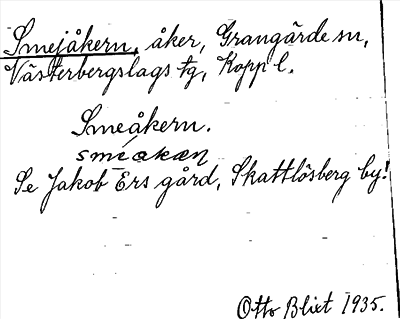 Smejåkern, åker, Grangärde sn,
Västerbergslags tg, Kopp l.
Smeåkern.
smíakan
Se Jakob Ers gård, Skattlösberg by!
Otto Blixt 1935.